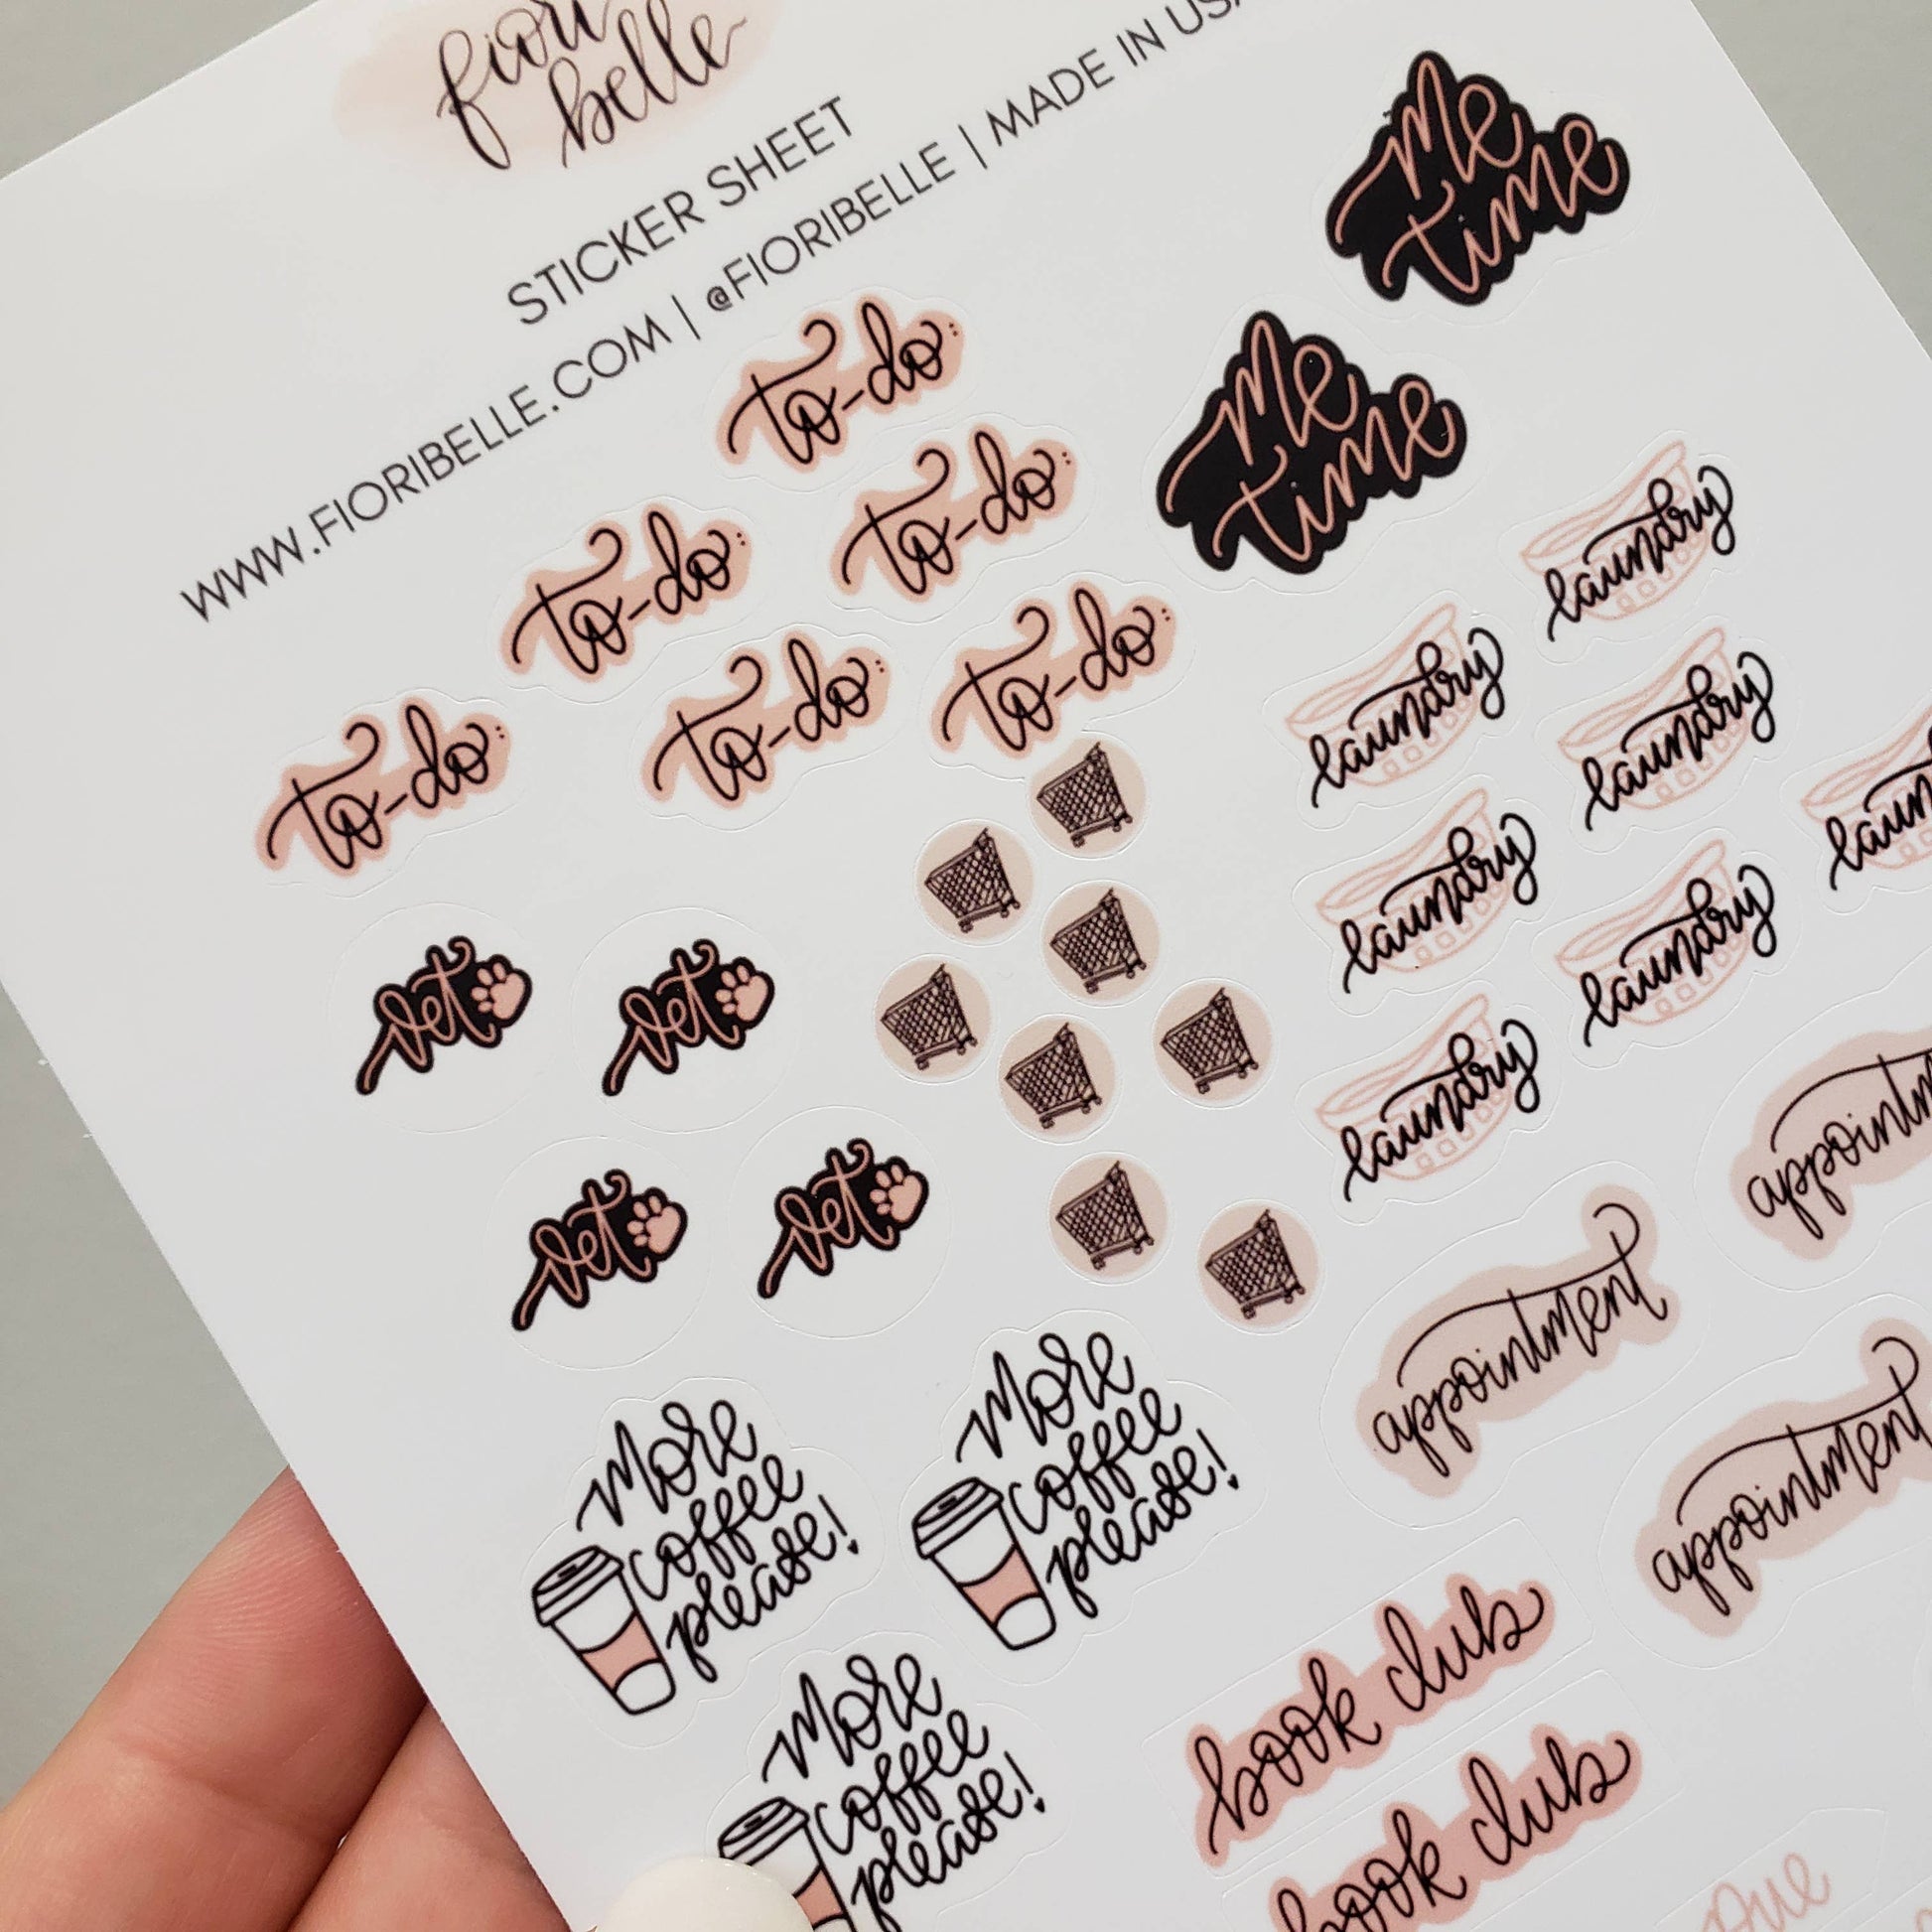 fiori
belle
STICKER SHEET
WWW.FIORIBELLE.COM | @FIORIBELLE | MADE IN USA
me
time
me
time
to-do:
to-do:
to-do:
to-do:
to-do:
to-do:
laundry
laundry
laundry
laundry
laundry
laundry
vet
vet
vet
vet
appointment
appointment
More
coffee
please!
More
coffee
please!
More
coffee
please!
book club
book club